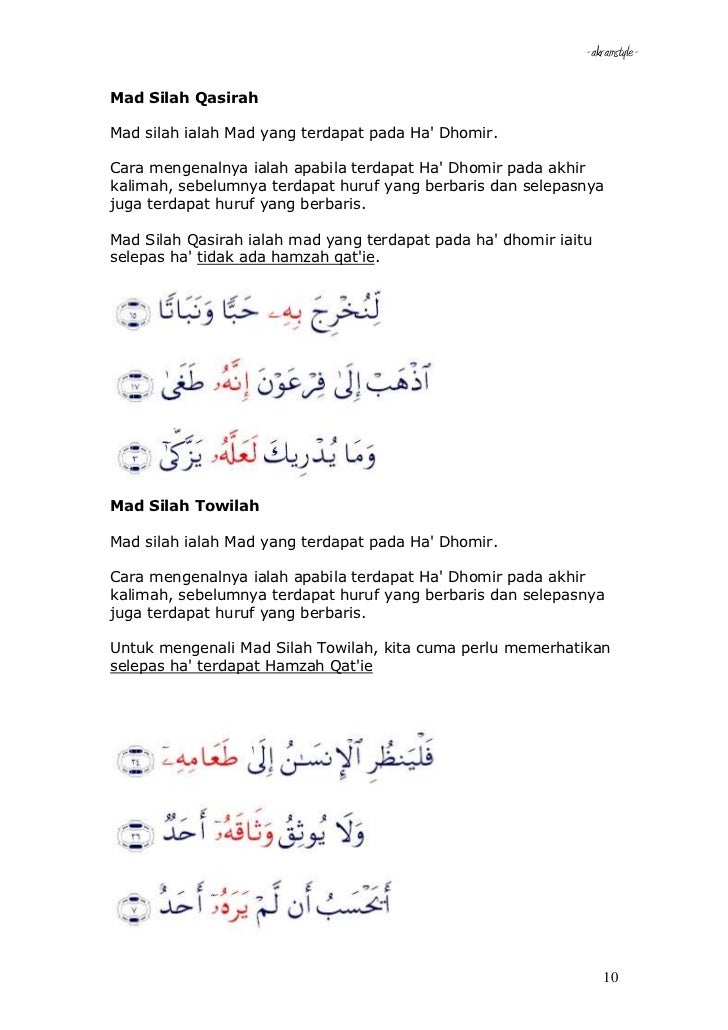 -akramstyle-
Mad Silah Qasirah
Mad silah ialah Mad yang terdapat pada Ha' Dhomir.
Cara mengenalnya ialah apabila terdapat Ha' Dhomir pada akhir
kalimah, sebelumnya terdapat huruf yang berbaris dan selepasnya
juga terdapat huruf yang berbaris.
Mad Silah Qasirah ialah mad yang terdapat pada ha' dhomir iaitu
selepas ha' tidak ada hamzah qat'ie.
لِّنُخْرِجَ بِهِۦ حَبًّا وَنَبَاتًا ١٥
ٱذْهَبْ إِلَىٰ فِرْعَوْنَ إِنَّهُۥ طَغَىٰ ١٧
وَمَا يُدْرِيكَ لَعَلَّهُۥ يَزَّكَّىٰٓ ٣
Mad Silah Towilah
Mad silah ialah Mad yang terdapat pada Ha' Dhomir.
Cara mengenalnya ialah apabila terdapat Ha' Dhomir pada akhir
kalimah, sebelumnya terdapat huruf yang berbaris dan selepasnya
juga terdapat huruf yang berbaris.
Untuk mengenali Mad Silah Towilah, kita cuma perlu memerhatikan
selepas ha' terdapat Hamzah Qat'ie
فَلْيَنظُرِ ٱلْإِنسَـٰنُ إِلَىٰ طَعَامِهِۦٓ ٢٤
وَلَا يُوثِقُ وَثَاقَهُۥٓ أَحَدٌ ٢٦
أَيَحْسَبُ أَن لَّمْ يَرَهُۥٓ أَحَدٌ ٧
10